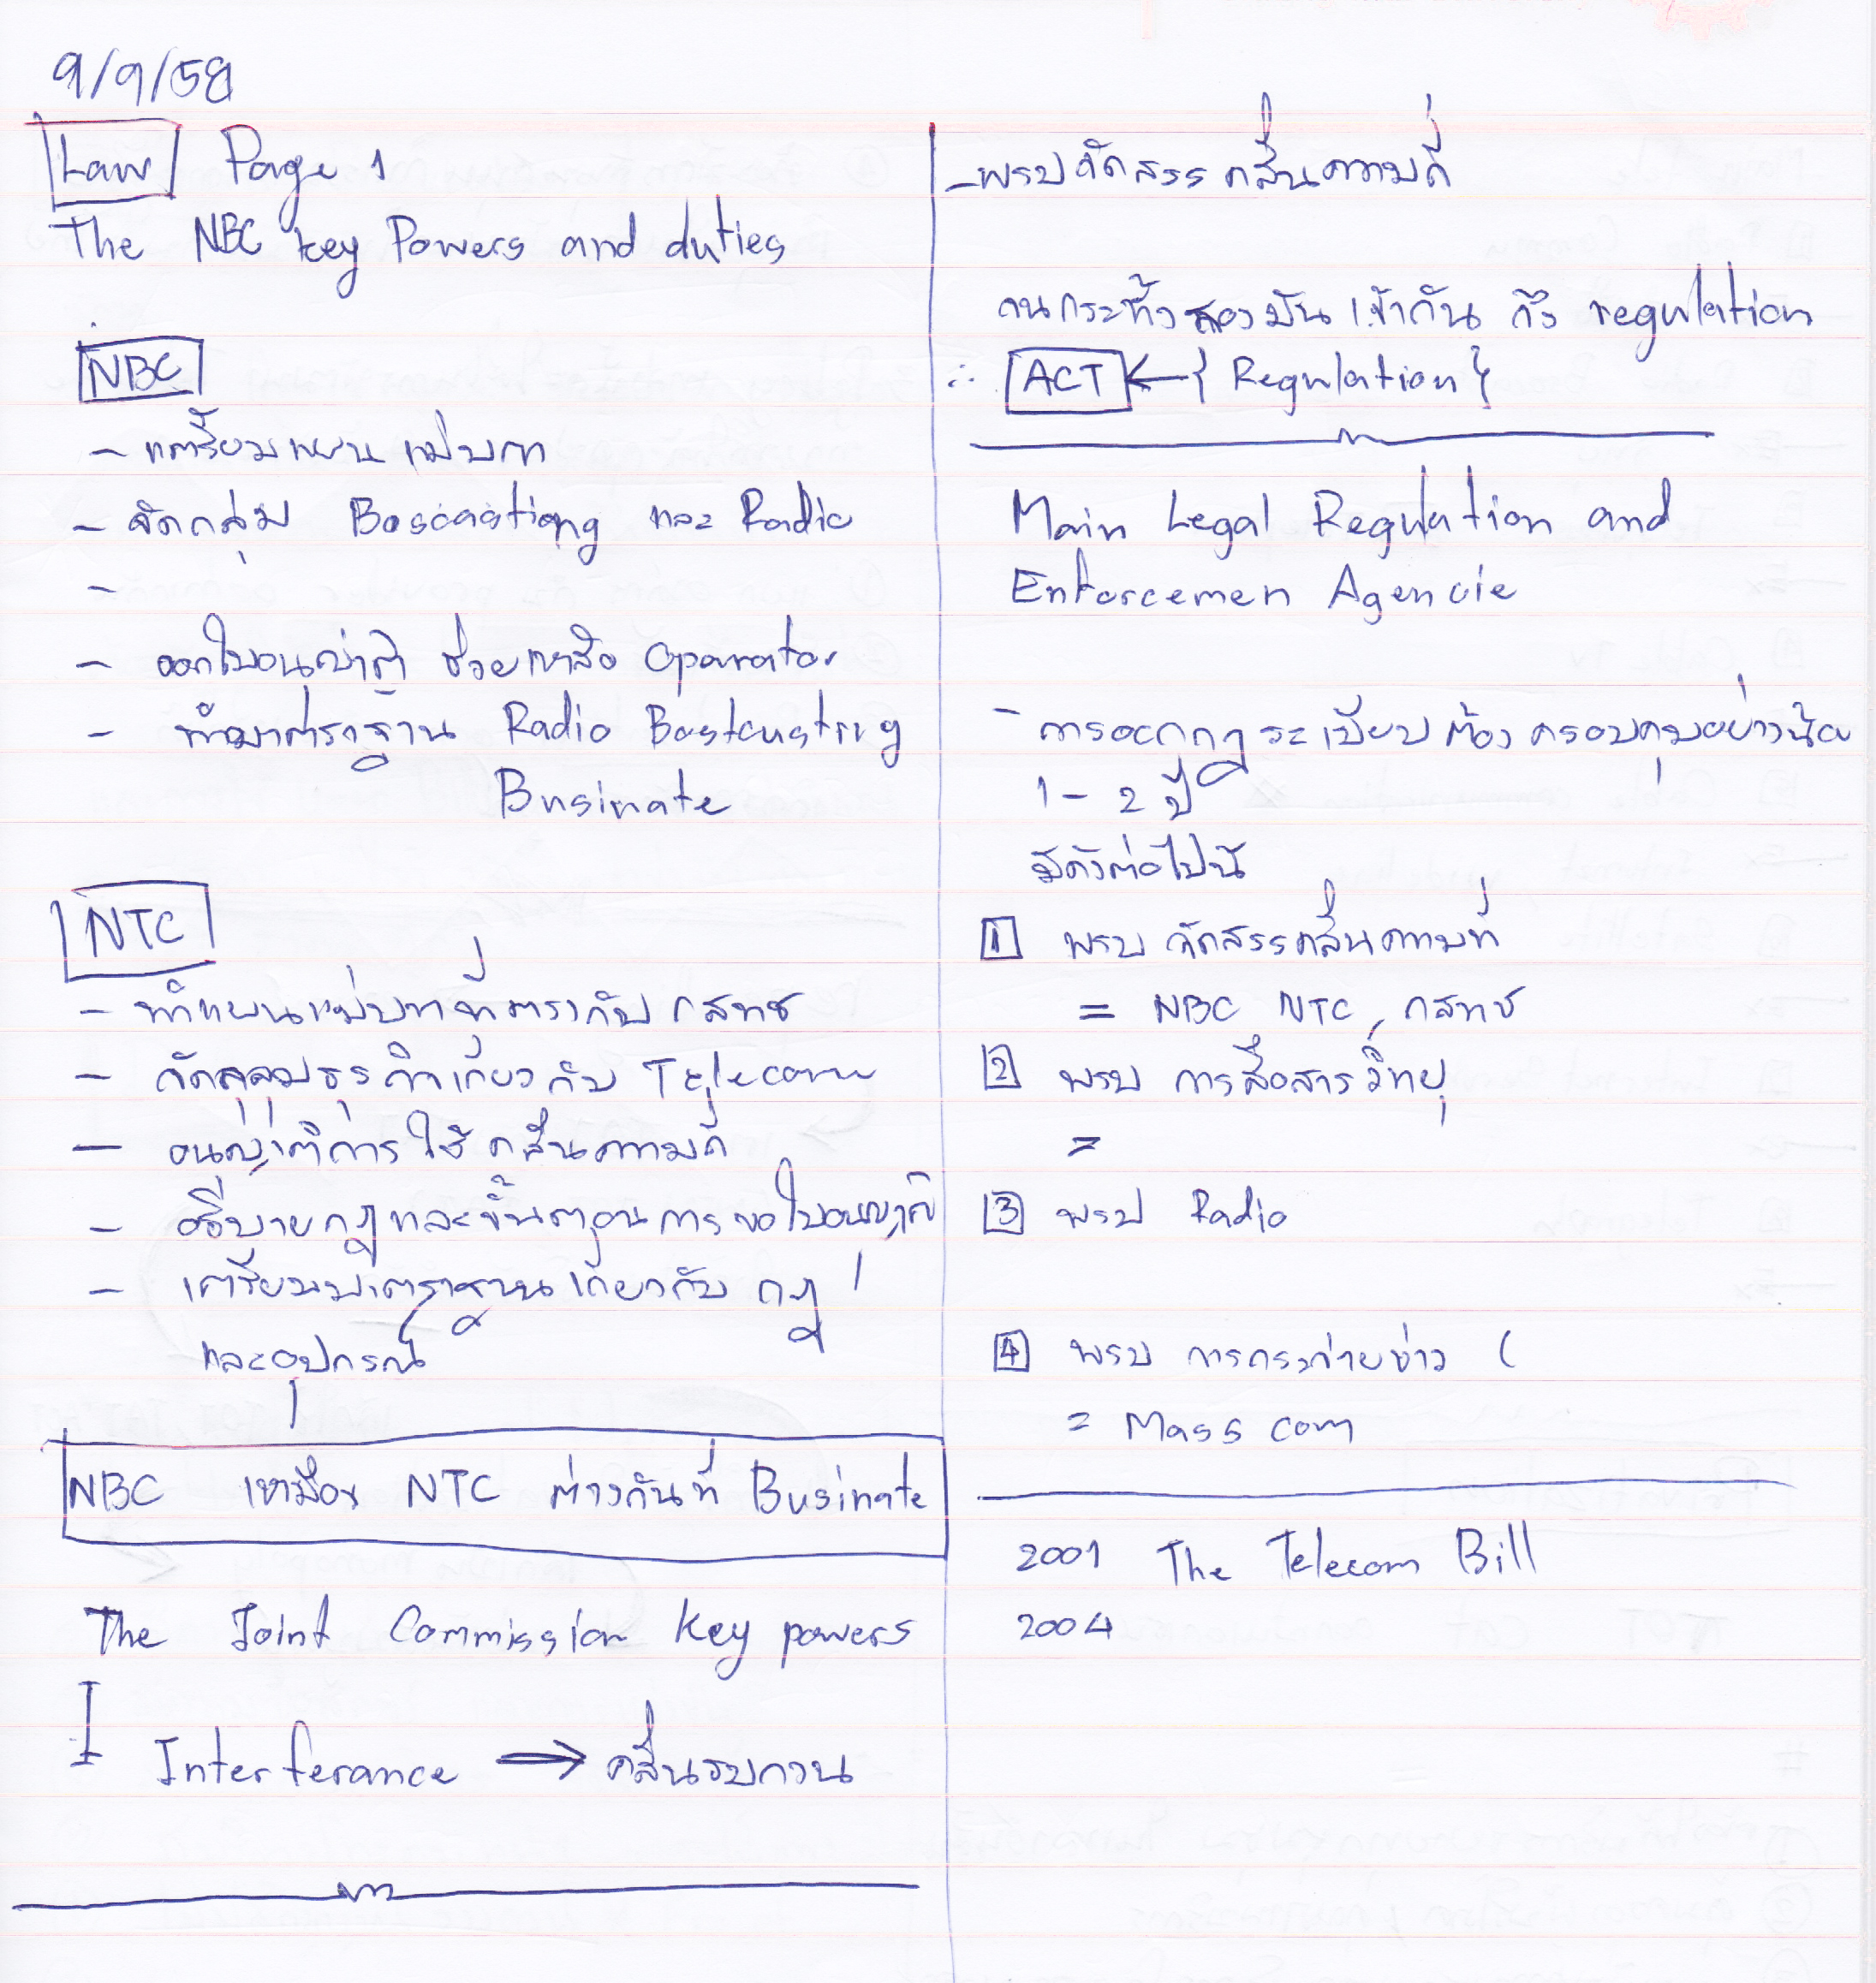 9/9/58
Law Page 1
The NBC key Powers and duties
NBC
- เตรียมแผนแม่บท
- จัดกลุ่ม Boscastiong และ Radio
-
- ออกใบอนุญาติ ช่วยเหลือ Oparator
- ทำมาตราฐาน Radio Bostcusting
Businate
NTC
- ทำแผนแม่บทที่ตรงกับ กสทช
- จัดกลุ่มธุรกิจเกี่ยวกับ Telecom
- อนุญาติการใช้คลื่นความถี่
- อธิบายกฎและขั้นตอนการขอใบอนุญาติ
- เตรียมมาตราฐานเกี่ยวกับ กฎ
และอุปกรณ์
NBC เหมือน NTC ต่างกันที่ Businate
The Joint Commission key powers
Interferance → คลื่นรบกวน
- พรบจัดสรร คลื่นความถี่
คนกระทั้งสองมัน เข้ากัน ถึง regulation
∴ ACT ← { Regulation }
Main Legal Regulation and
Enforcemen Agencie
- การออกกฎระเบียบต้องครอบคุมอย่างน้อย
1 - 2 ปี
มีดังต่อไปนี้
1 พรบ จัดสรรคลื่นความที่
= NBC NTC, กสทช
2 พรบ การสื่อสารวิทยุ
=
3 พรบ Radio
4 พรบ การกระจ่ายข่าว (
= Mass com
2001 The Telecom Bill
2004